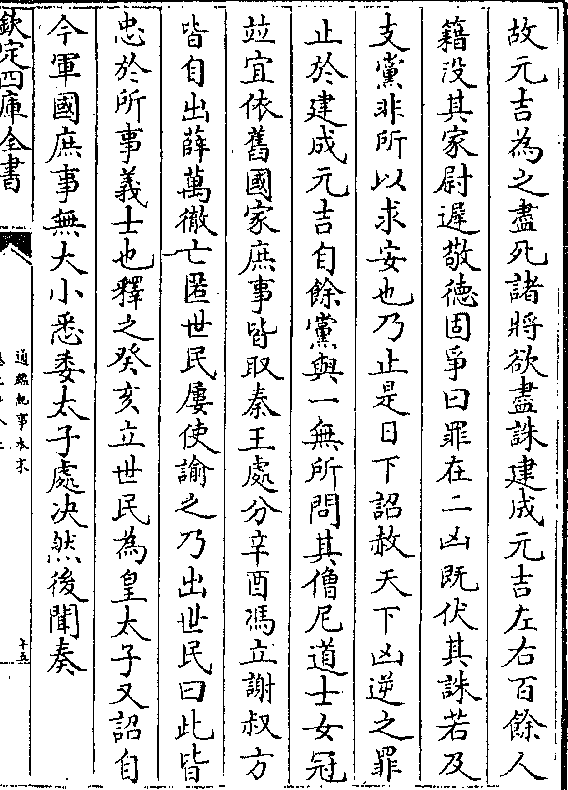 故元吉為之盡死諸將欲盡誅建成元吉左右百餘人
籍没其家尉遲敬徳固爭曰罪在二凶既伏其誅若及
支黨非所以求安也乃止是日下詔赦天下凶逆之罪
止於建成元吉自餘黨與一無所問其僧尼道士女冠
竝宜依舊國家庶事皆取秦王處分辛酉馮立謝叔方
皆自出薛萬徹亡匿世民屢使諭之乃出世民曰此皆
忠於所事義士也釋之癸亥立世民為皇太子又詔自
今軍國庶事無大小悉委太子處决然後聞奏
欽定四庫全書
通鑑紀事本末
十五